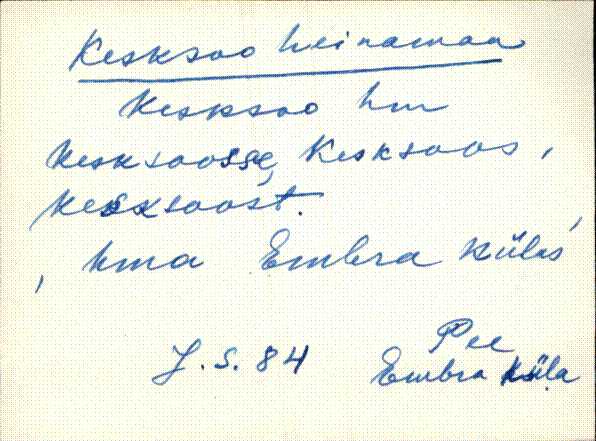 Kesksoo heinamaa
Kesksoo hm
Kesksoosse, Kesksoos,
Kesksoost.
, hma Embra külas,
J. S. 84 Pee
Embra küla